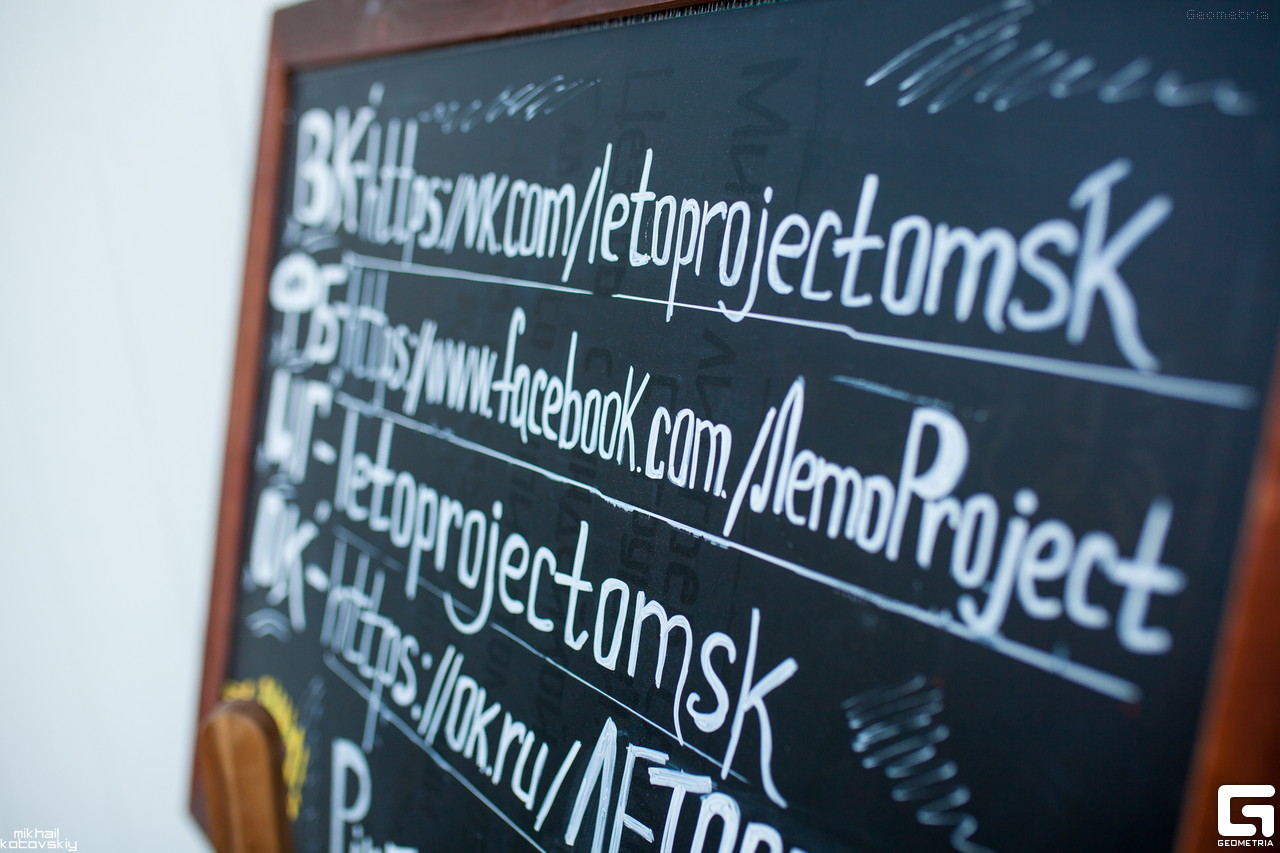 Geometria
ВК https://vk.com/letoprojectomsk
https://www.facebook.com./ЛетоProject
- letoprojectomsk
ОК - https://ok.ru/ЛЕТОПР
mikhail
kotovskiy
GEOMETRIA